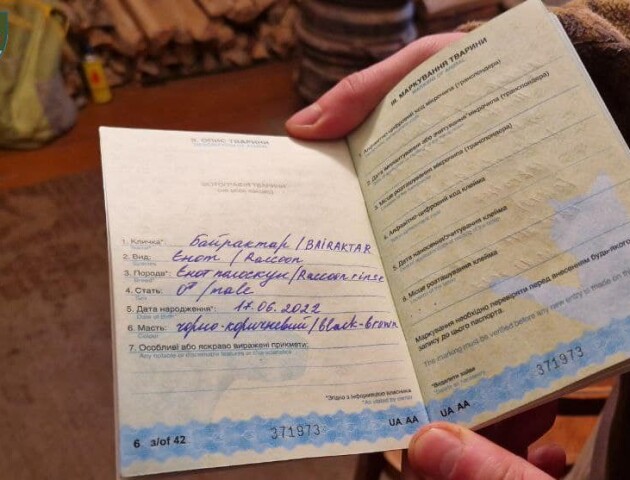 II. ОПИС ТВАРИНИ
DESCRIPTION OF ANIMAL
ФОТОГРАФІЯ ТВАРИНИ
1. Кличка*: Байрактар / BAIRAKTAR
Name*:
2. Вид: Енот / Raccoon
Species:
3. Порода*: Енот полоскун / Raccoon rinse
Breed*:
4. Стать: ♂ / male
Sex:
5. Дата народження*: 17.06.2022
Date of Birth*:
6. Масть: чорно-коричневий / black-brown
Colour:
7. Особливі або яскраво виражені прикмети:
Any notable or discernable features or characteristics:
*Згідно з інформацією власника
*As stated by owner
6 з/of 42
371973
UA AA
III. МАРКУВАННЯ ТВАРИНИ
MARKING OF ANIMAL
1. Алфавітно-цифровий код мікрочипа (транспондера)
2. Дата імплантування або зчитування* мікрочипа (транспондера)
3. Місце розташування мікрочипа (транспондера)
4. Алфавітно-цифровий код клейма
5. Дата нанесення/зчитування клейма
6. Місце розташування клейма
Маркування необхідно перевірити перед внесенням будь-якого
запису до цього паспорта.
The marking must be verified before any new entry is made on
*Виділити зайве
371973
UA AA